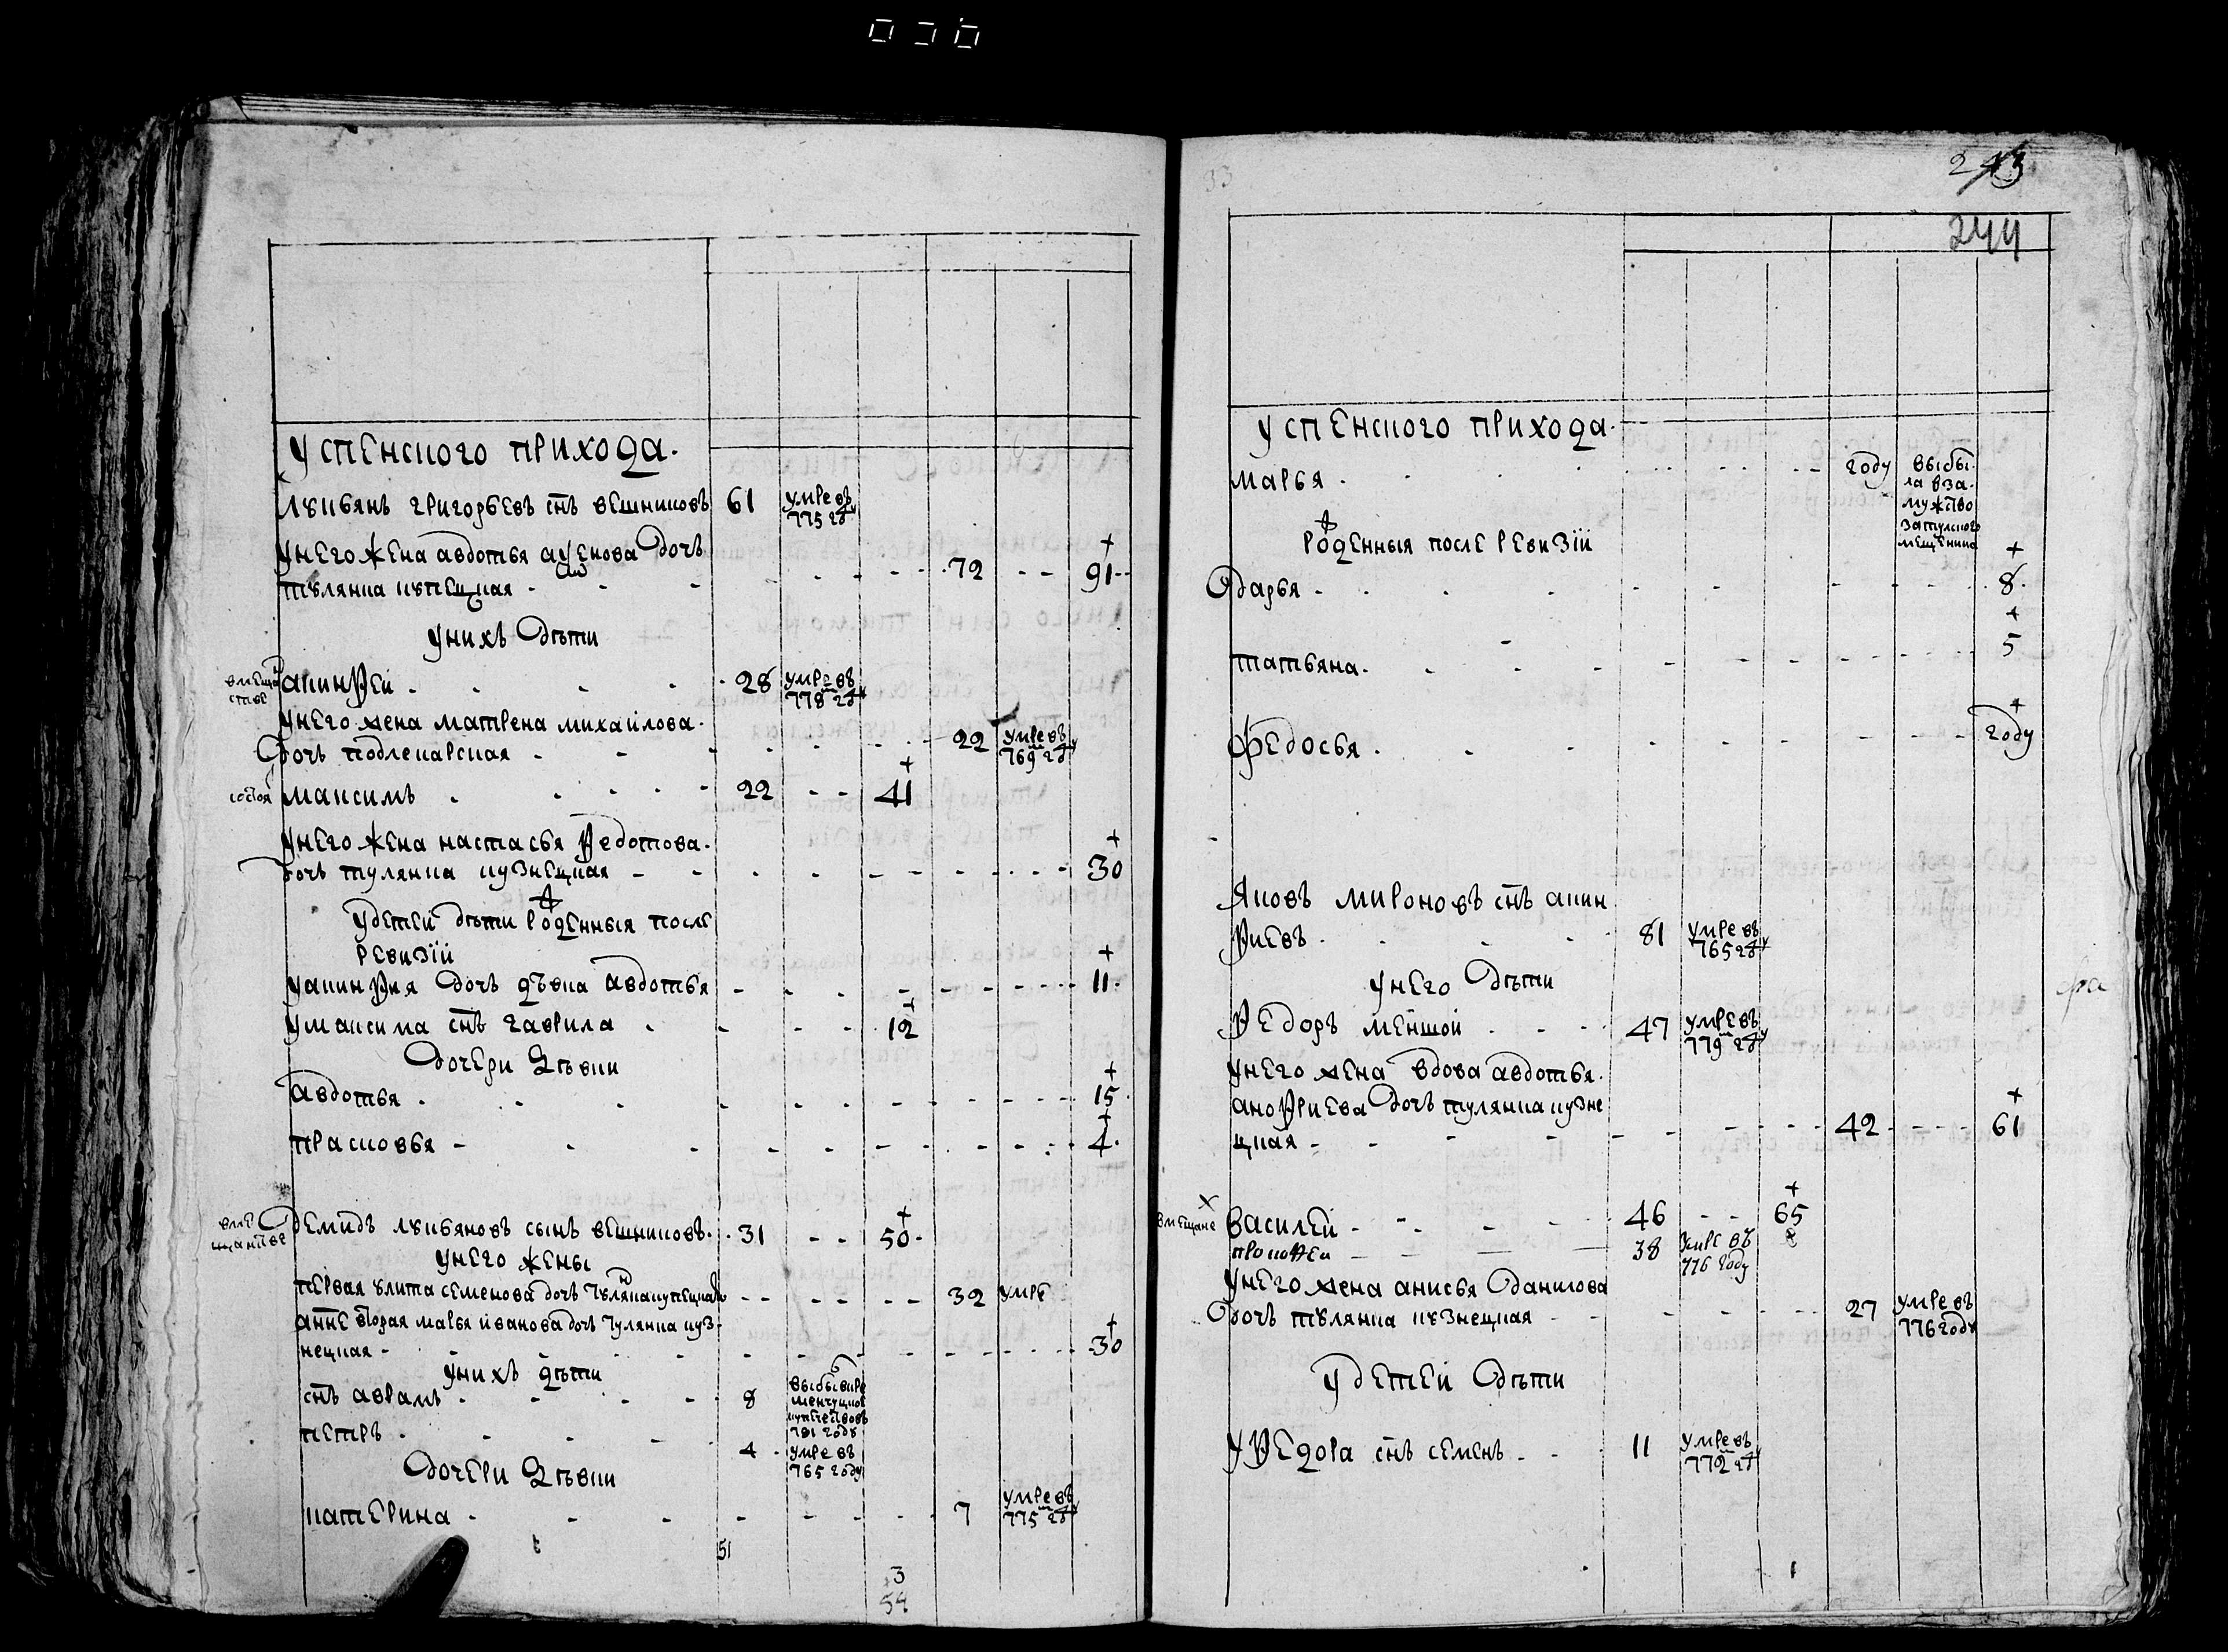 Успенского прихода.
Лукьянъ григорьевъ снъ вешниковъ 61 умре въ
775 году
унего жена авдотья дочь
тулянка купецкая 72 91
уних дѣти
вмеща
стве
анкиндей 28 умре въ
778 году
унего жена матрена михайлова
дочь
22 умре въ
769 году
максимъ 22 41
унего жена настасья Федотова
дочь тулянка кузнецкая 30
удетей дѣти рожденныя после
ревизiи
дочь дѣвка авдотья 11
умаксима снъ гаврила 12
дочери дѣвки
авдотья 15
прасковья 4
вме
щанстве
демидъ лукьяновъ сынъ вешниковъ 31 50
унего жены
первая улита семенова дочь тулянка купецкая 32 умре
вторая марья иванова дочь тулянка куз
нецкая 30
унихъ дѣти
снъ аврамъ 8
781 году
петръ 4 умре въ
765 году
дочери дѣвки
катерина 7 умре въ
775 году
51
3
54
33
243
244
Успенского прихода
марья году выбы
ла вза
мужство
затулского
мещенина
рожденныя после ревизiи
дарья 8
татьяна 5
федосья году
Яковъ мироновъ снъ
81 умре въ
765 году
унего дѣти
Федоръ меншой 47 умре въ
779 году
унего жена вдова авдотья
дочь тулянка кузне
цкая 42 61
вмещане василей 46 65
прокофеи 38 умре въ
776 году
унего жена анисья данилова
дочь тулянка кузнецкая 27 умре въ
776 году
удетей дѣти
уФедора снъ семенъ 11 умре въ
772 году
1